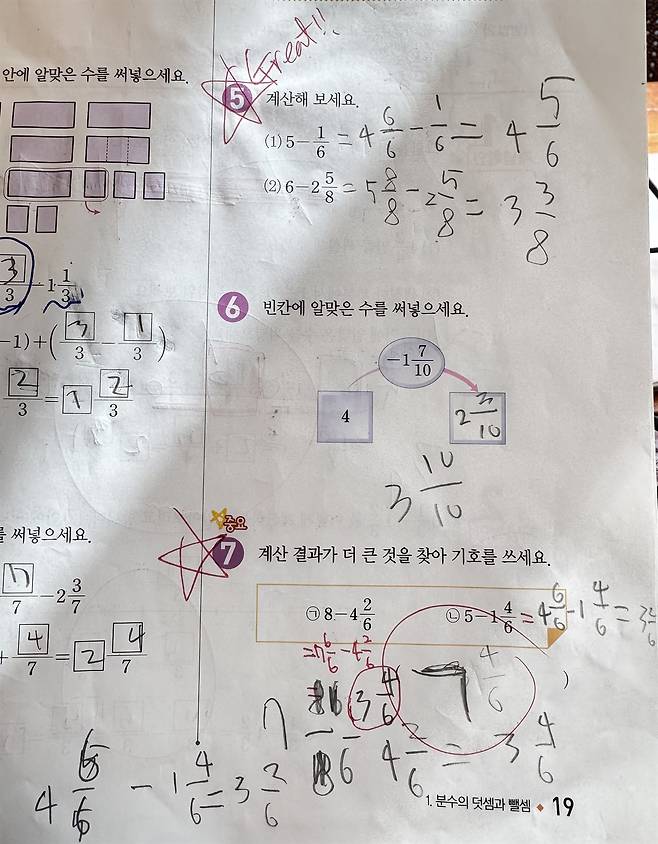 안에 알맞은 수를 써넣으세요.
3/3 - 1 1/3
-1)+(3/3 - 1/3)
2/3 = 1 2/3
를 써넣으세요.
7/7 - 2 3/7
+ 4/7 = 2 4/7
Great!!
5 계산해 보세요.
(1) 5 - 1/6 = 4 6/6 - 1/6 = 4 5/6
(2) 6 - 2 5/8 = 5 8/8 - 2 5/8 = 3 3/8
6 빈칸에 알맞은 수를 써넣으세요.
-1 7/10
4
2 3/10
3 10/10
중요
7 계산 결과가 더 큰 것을 찾아 기호를 쓰세요.
㉠ 8 - 4 2/6
㉡ 5 - 1 4/6 = 4 6/6 - 1 4/6 = 3
= 7 6/6 - 4 2/6
= 3 4/6
4/6
)
7
4 2/6 = 3 4/6
4 6/6 - 1 4/6 = 3 2/6
1. 분수의 덧셈과 뺄셈 ◆ 19